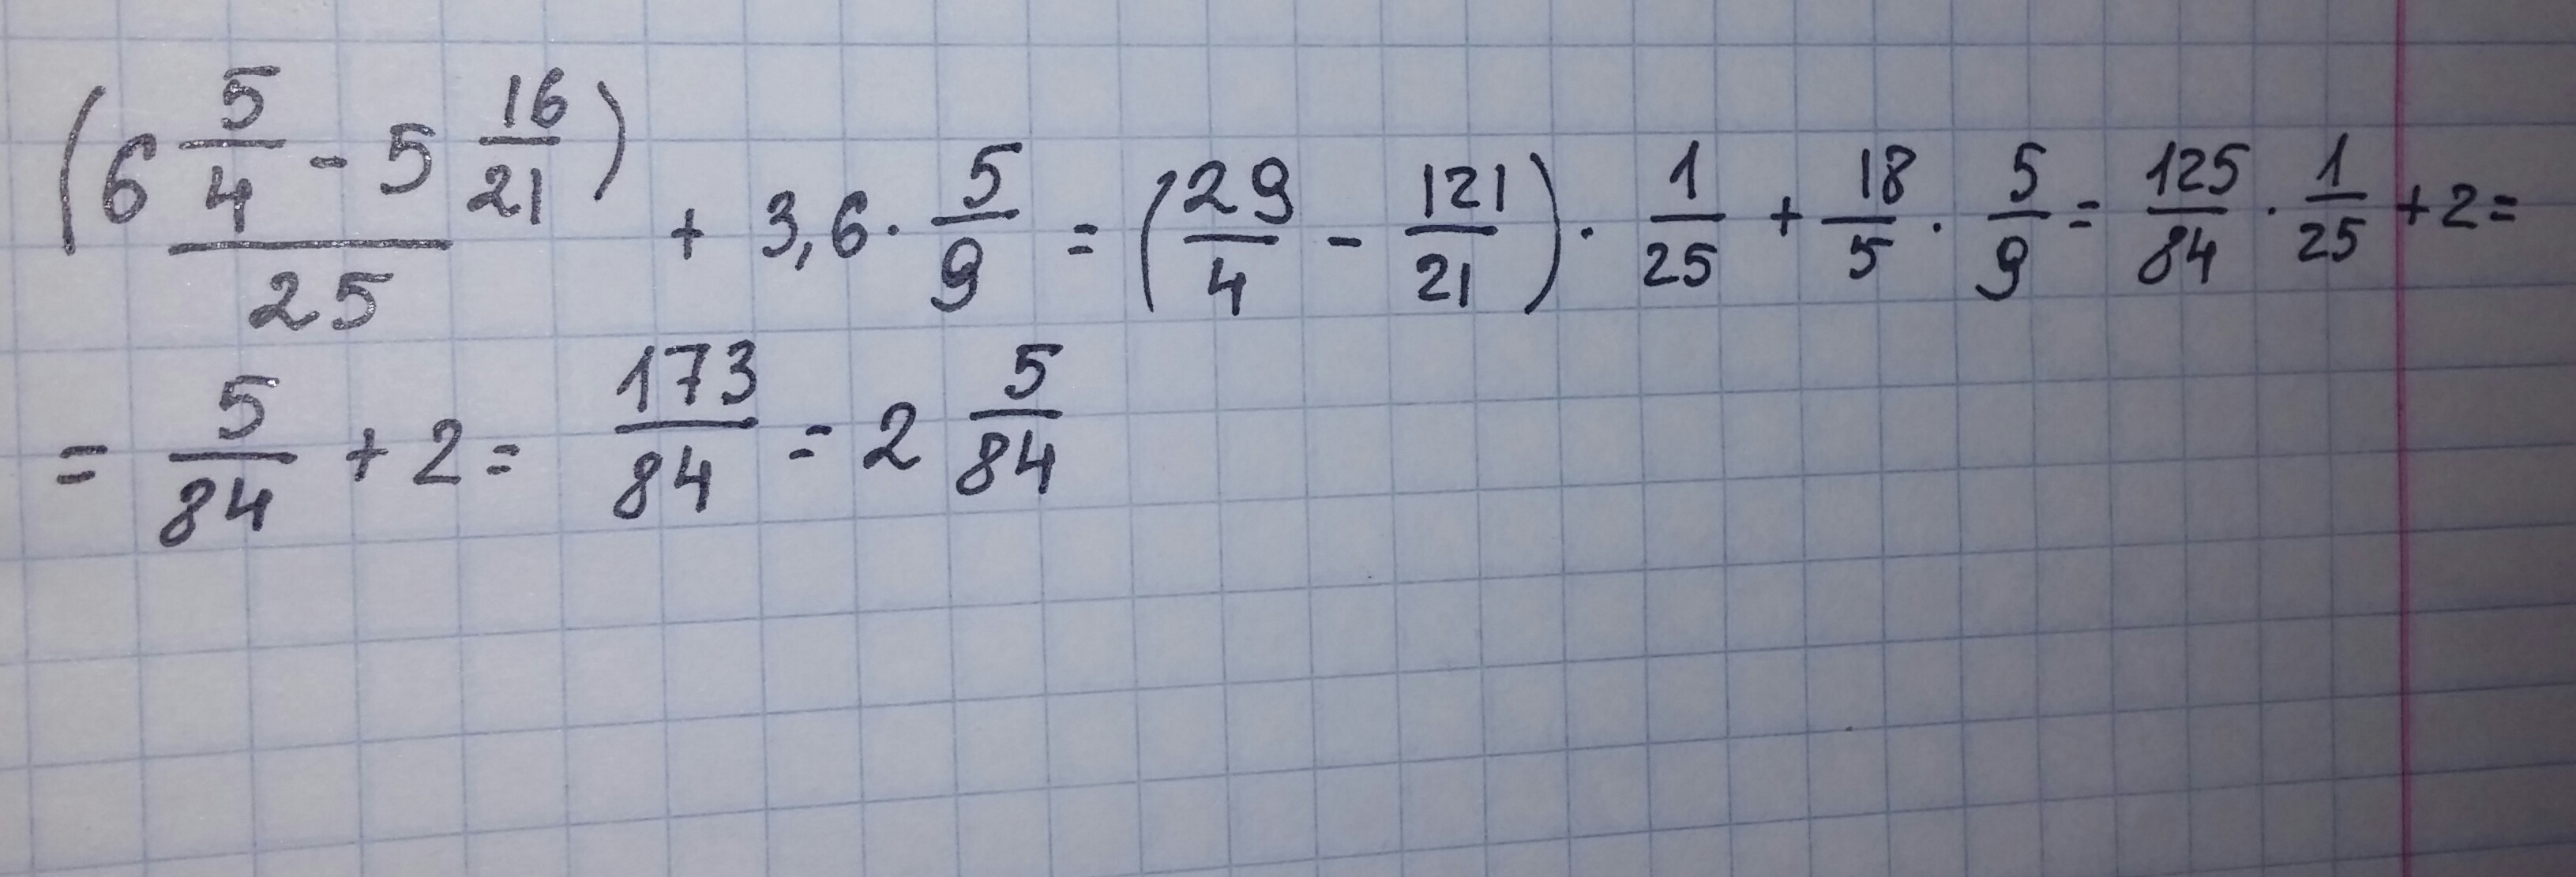 (6 5/4 - 5 16/21)/25 + 3,6 · 5/9 = (29/4 - 121/21) · 1/25 + 18/5 · 5/9 = 125/84 · 1/25 + 2 =
= 5/84 + 2 = 173/84 = 2 5/84